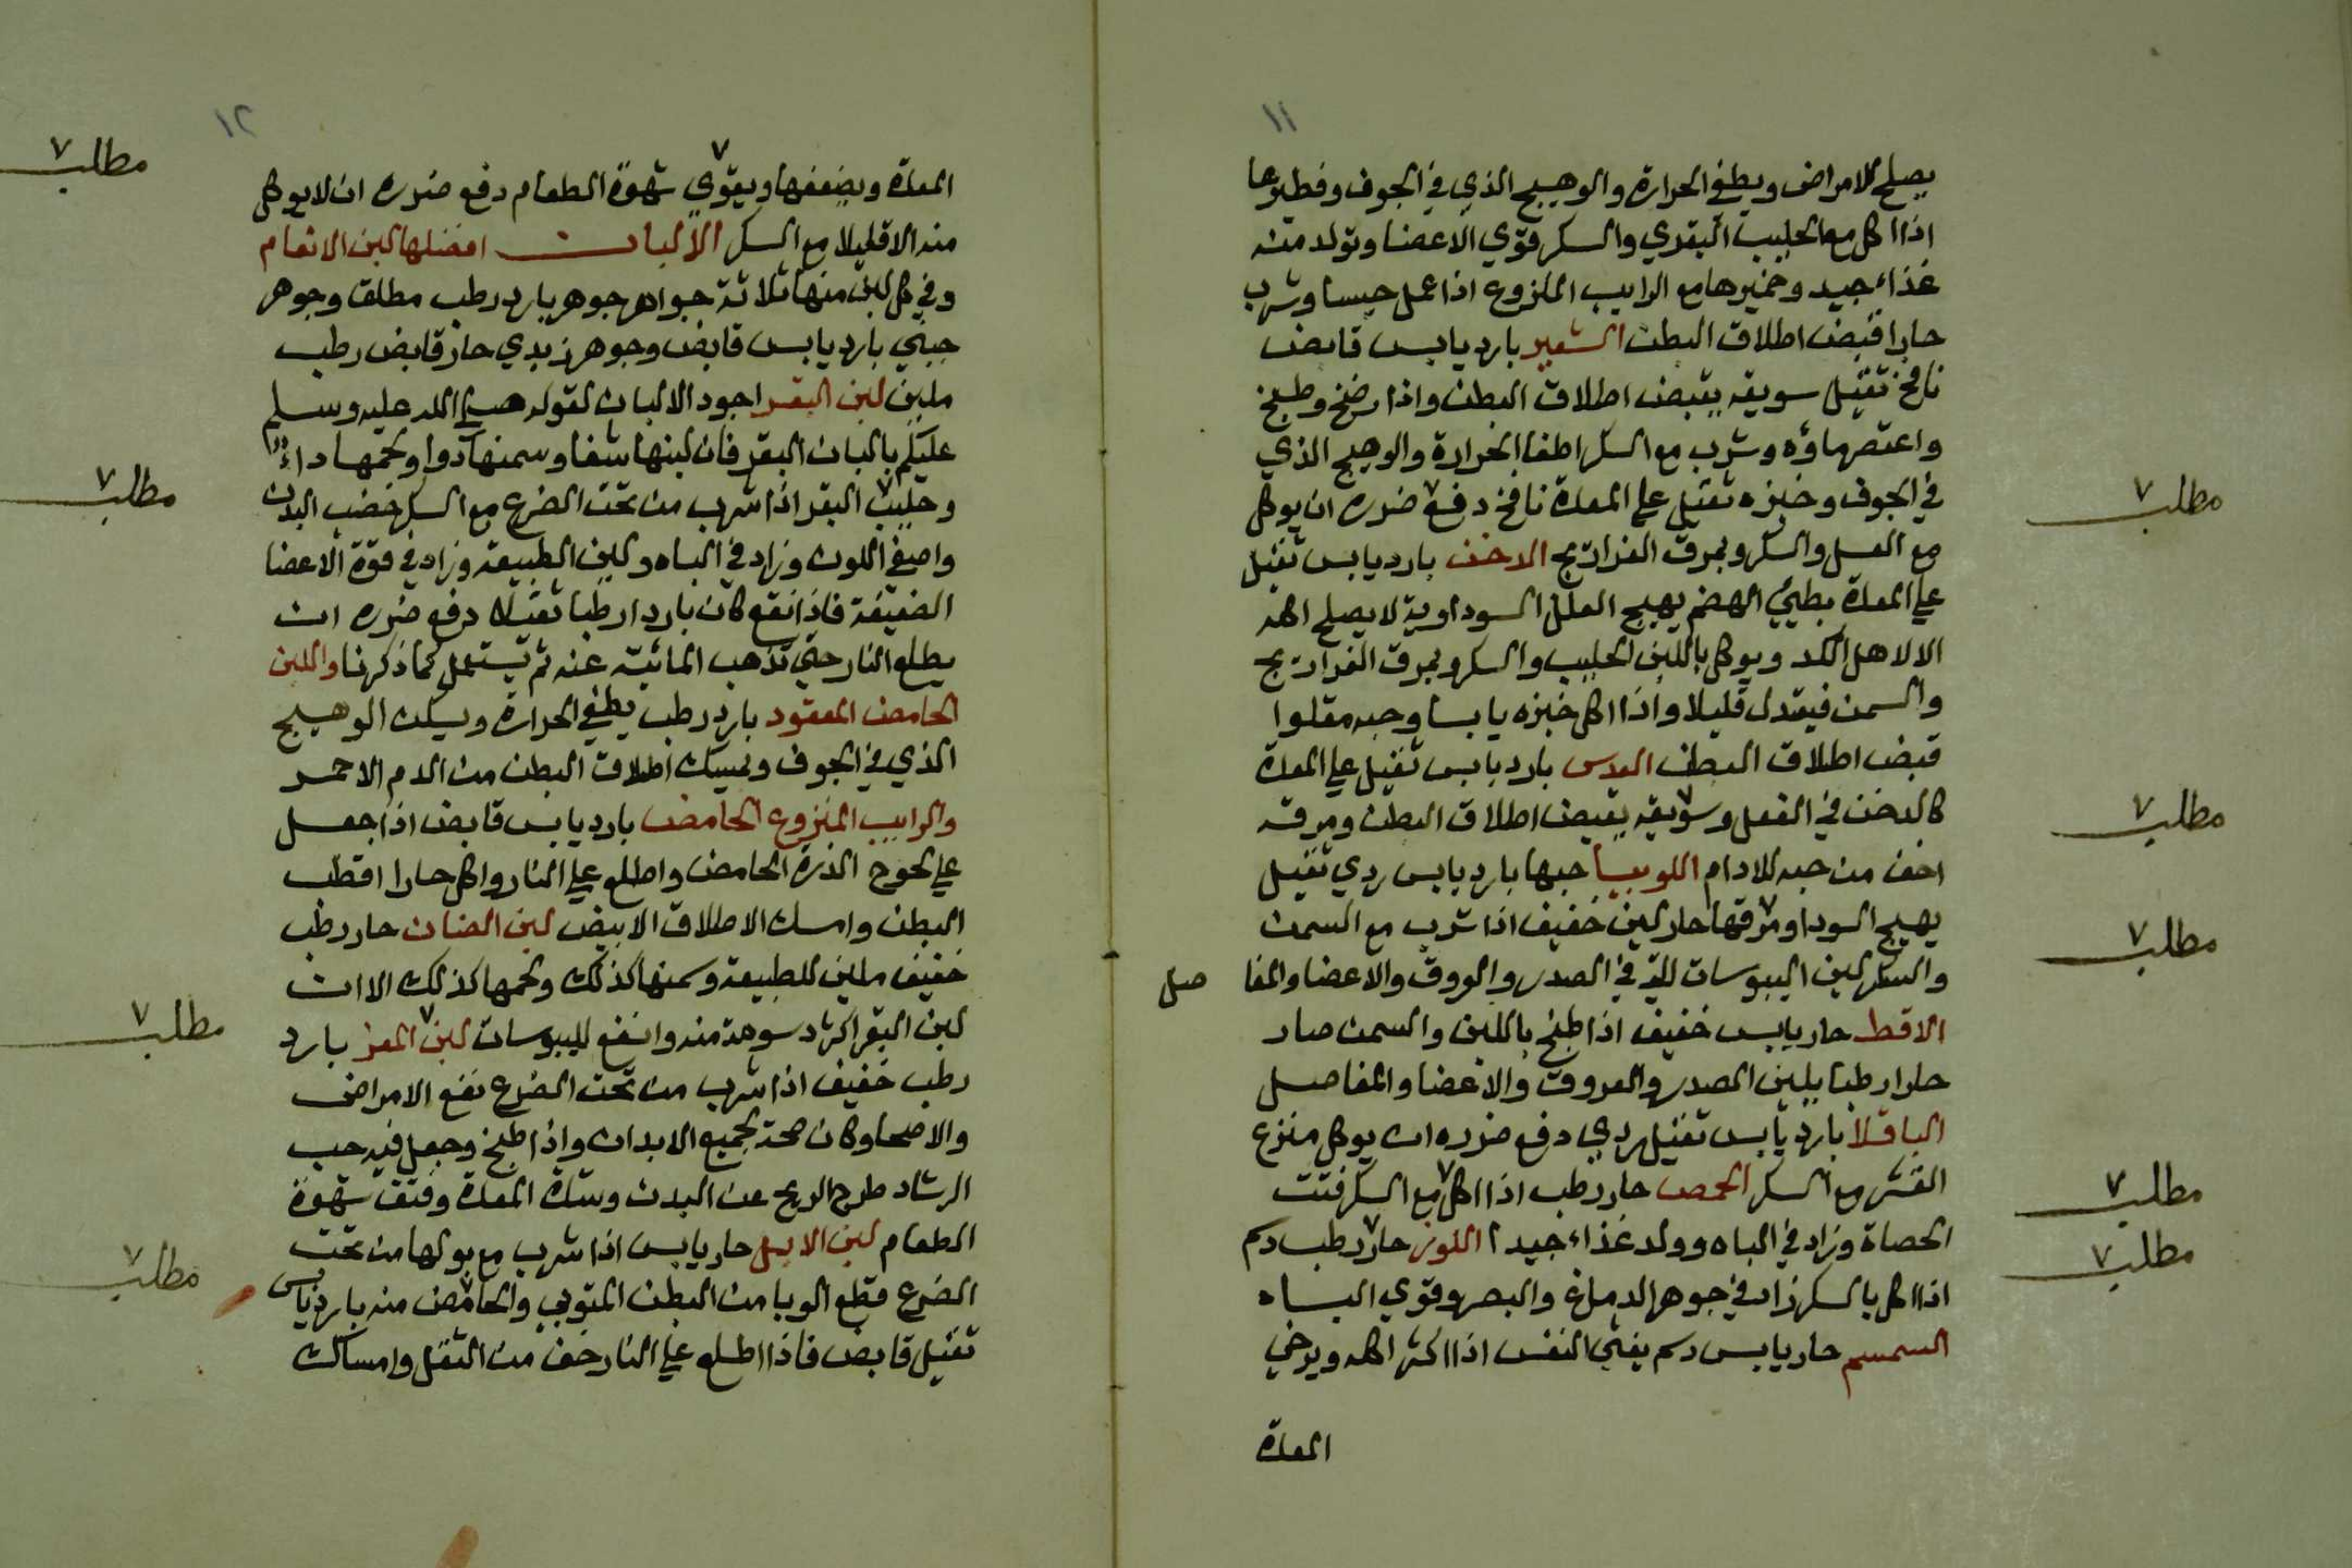 ١١
يصلح للامراض ويطفي الحرارة والوهيج الذي في الجوف وفطيرها
اذا اكل مع الحليب البقري والسكر قوي الاعضا وتولد منه
غذاء جيد وخميرها مع الرايب المنزوع اذا عمل حيسا وشرب
حارا قبض اطلاق البطن الشعير بارد يابس قابض
نافخ ثقيل سويقه يقبض اطلاق البطن واذا رضخ وطبخ
واعتصر ماؤه وشرب مع السكر اطفا الحرارة والوهيج الذي
في الجوف وخبزه ثقيل علي المعدة نافخ دفع ضرره ان يوكل
مع العسل والسكر وبمرق الفراريج الدخن بارد يابس ثقيل
علي المعدة بطيئ الهضم يهيج العلل السوداوية لا يصلح اكله
الا لاهل الكد ويوكل باللبن الحليب والسكر وبمرق الفراريج
والسمن فيعتدل قليلا واذا اكل خبزه يابسا وحبه مقلوا
قبض اطلاق البطن العدس بارد يابس ثقيل علي المعدة
كالدخن في الفعل وسويقه يقبض اطلاق البطن ومرقه
اخف من حبه للادام اللوبيا حبها بارد يابس ردي ثقيل
يهيج السودا ومرقها حار لين خفيف اذا شرب مع السمن
والسكر لين اليبوسات التي في الصدر والعروق والاعضا والمفا صل
الاقط حار يابس خفيف اذا طبخ باللبن والسمن صار
حارا رطبا يلين الصدر والعروق والاعضا والمفاصل
الباقلا بارد يابس ثقيل ردي دفع ضرره ان يوكل منزع
القشر مع السكر الحمص حار رطب اذا اكل مع السكر فتت
الحصاة وزاد في الباه وولد غذاء جيدا اللوز حار رطب دسم
اذا اكل بالسكر زاد في جوهر الدماغ والبصر وقوي الباه
السمسم حار يابس دسم يغثي النفس اذا اكثر اكله ويرخي
المعدة
مطلب ٧
مطلب ٧
مطلب ٧
مطلب ٧
مطلب ٧
١٢
المعدة ويضعفها ويقوي شهوة الطعام دفع ضرره ان لا يوكل
منه الا قليلا مع السكر الالبان افضلها لبن الانعام
وفي كل لبن منها ثلاثة جواهر جوهر بارد رطب مطلق وجوهر
جبني بارد يابس قابض وجوهر زبدي حار قابض رطب
ملين لبن البقر اجود الالبان لقوله صلي الله عليه وسلم
عليكم بالبان البقر فان لبنها شفا وسمنها دوا ولحمها داء
وحليب البقر اذا شرب من تحت الضرع مع السكر خصب البدن
واصفي اللون وزاد في الباه ولين الطبيعة وزاد في قوة الاعضا
الضعيفة فاذا نقع كان باردا رطبا ثقيلا دفع ضرره ان
يطلع النار حتي تذهب المائية عنه ثم يستعمل كما ذكرنا واللبن
الحامض المعقود بارد رطب يطفي الحرارة ويسكن الوهيج
الذي في الجوف ويمسك اطلاق البطن من الدم الاحمر
والرايب المنزوع الحامض بارد يابس قابض اذا جعل
علي لحوح الذرة الحامض واطلع علي النار واكل حارا اقطب
البطن وامسك الاطلاق الابيض لبن الضان حار رطب
خفيف ملين للطبيعة وسمنها كذلك ولحمها كذلك الا ان
لبن البقر اكثر دسومة منه وانفع لليبوسات لبن المعز بارد
رطب خفيف اذا شرب من تحت الضرع نفع الامراض
والاصحا وكان صحة لجميع الابدان واذا طبخ وجعل فيه حب
الرشاد طرح الريح عن البدن وشد المعدة وفتق شهوة
الطعام لبن الابل حار يابس اذا شرب مع بولها من تحت
الضرع قطع الوبا من البطن المتوبي والحامض منه بارد يابس
ثقيل قابض فاذا اطلع علي النار خف من الثقل وامساك
مطلب ٧
مطلب ٧
مطلب ٧
مطلب ٧